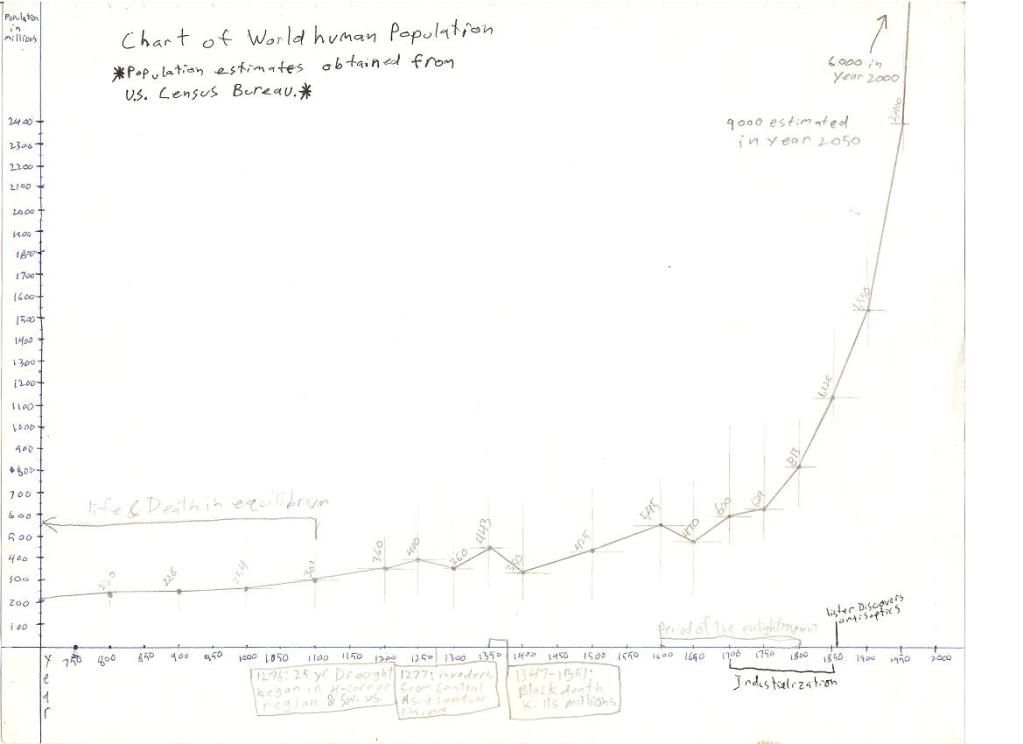 Population
in
millions
Chart of World human Population
*Population estimates obtained from
U.S. Census Bureau.*
6000 in
year 2000
9000 estimated
in year 2050
2400
2300
2200
2100
2000
1900
1800
1700
1600
1500
1400
1300
1200
1100
1000
900
800
700
600
500
400
300
200
100
life & Death in equilibrium
220
226
254
301
360
400
360
443
350
425
545
470
600
629
813
1,128
1,550
2400
Lister Discovers
antiseptics
Period of the enlightenment
Year
750 800 850 900 950 1000 1050 1100 1150 1200 1250 1300 1350 1400 1450 1500 1550 1600 1650 1700 1750 1800 1850 1900 1950 2000
Industrialization
1276: 25 yr Drought
began in 4-corner
region & SW. US.
1277: invaders
from Central
Asia conquer
China
1347-1351:
Black death
kills millions